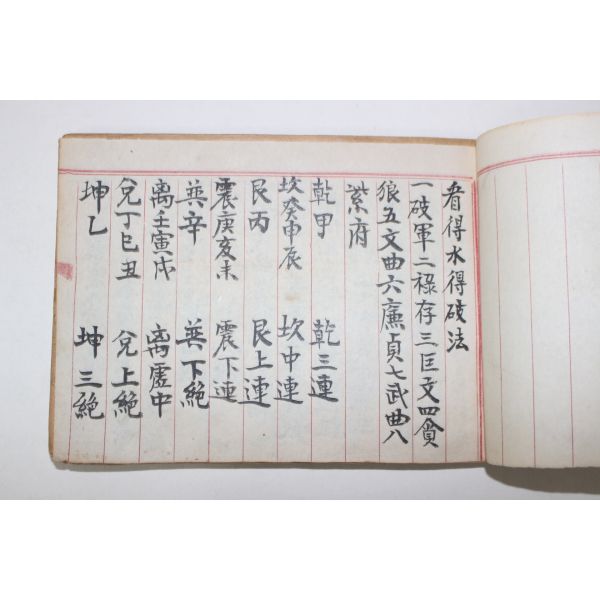 看得水得破法
一破軍二祿存三匡文四貪
狼五文曲六廉貞七武曲八
紫府
乾甲 乾三連
坎癸申辰 坎中連
艮丙 艮上連
震庚亥未 震下連
巽辛 巽下絕
离壬寅戌 离虛中
兌丁巳丑 兌上絕
坤乙 坤三絕